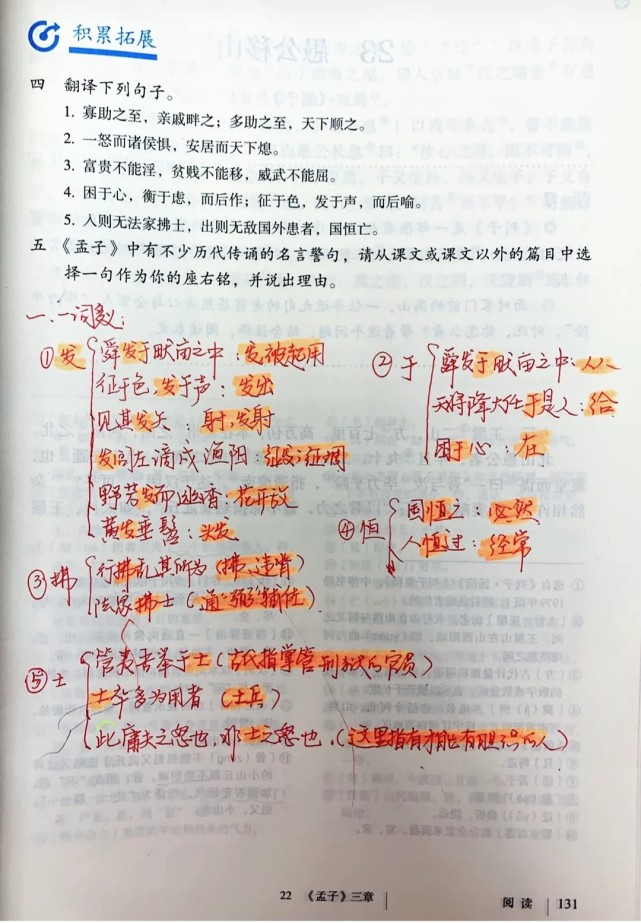 积累拓展
四 翻译下列句子。
1. 寡助之至，亲戚畔之；多助之至，天下顺之。
2. 一怒而诸侯惧，安居而天下熄。
3. 富贵不能淫，贫贱不能移，威武不能屈。
4. 困于心，衡于虑，而后作；征于色，发于声，而后喻。
5. 入则无法家拂士，出则无敌国外患者，国恒亡。
五 《孟子》中有不少历代传诵的名言警句，请从课文或课文以外的篇目中选
择一句作为你的座右铭，并说出理由。
一、一词多义：
①发
舜发于畎亩之中：发，被起用
征于色，发于声：发出
见其发矢 射，发射
发闾左谪戍渔阳 征发；征调
野芳发而幽香：花开放
黄发垂髫：头发
②于
舜发于畎亩之中：从
天将降大任于是人：给
困于心：在
④恒
国恒亡：必然
人恒过：经常
③拂
行拂乱其所为（拂，违背）
法家拂士（通"弼"辅佐）
⑤士
管夷吾举于士（古代指掌管刑狱的官员）
士卒多为用者（士兵）
此庸夫之怒也，非士之怒也，（这里指有才能也有胆识的人）
22 《孟子》三章
阅读 131